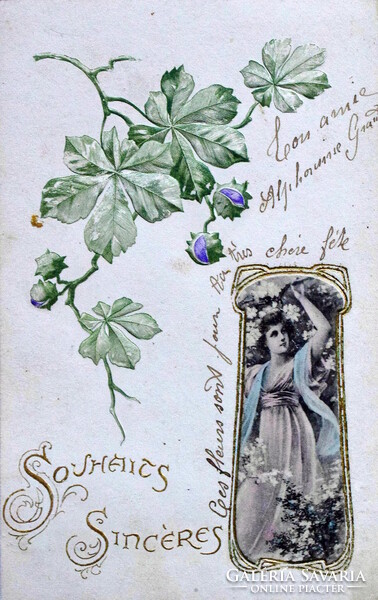 Ton amie
Alphonsine
Ces fleurs sont pour ta très chère fête
Souhaits
Sincères
GALERIA SAVARIA
ONLINE PIACTÉR